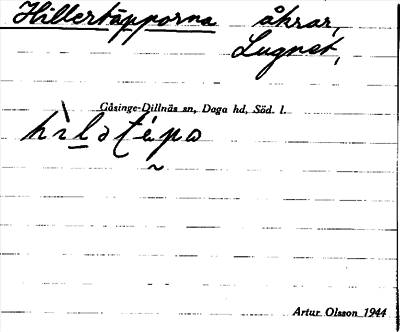 Hillertäpporna åkrar,
Lugnet,
Gåsinge-Dillnäs sn, Daga hd, Söd. l.
Artur Olsson 1944